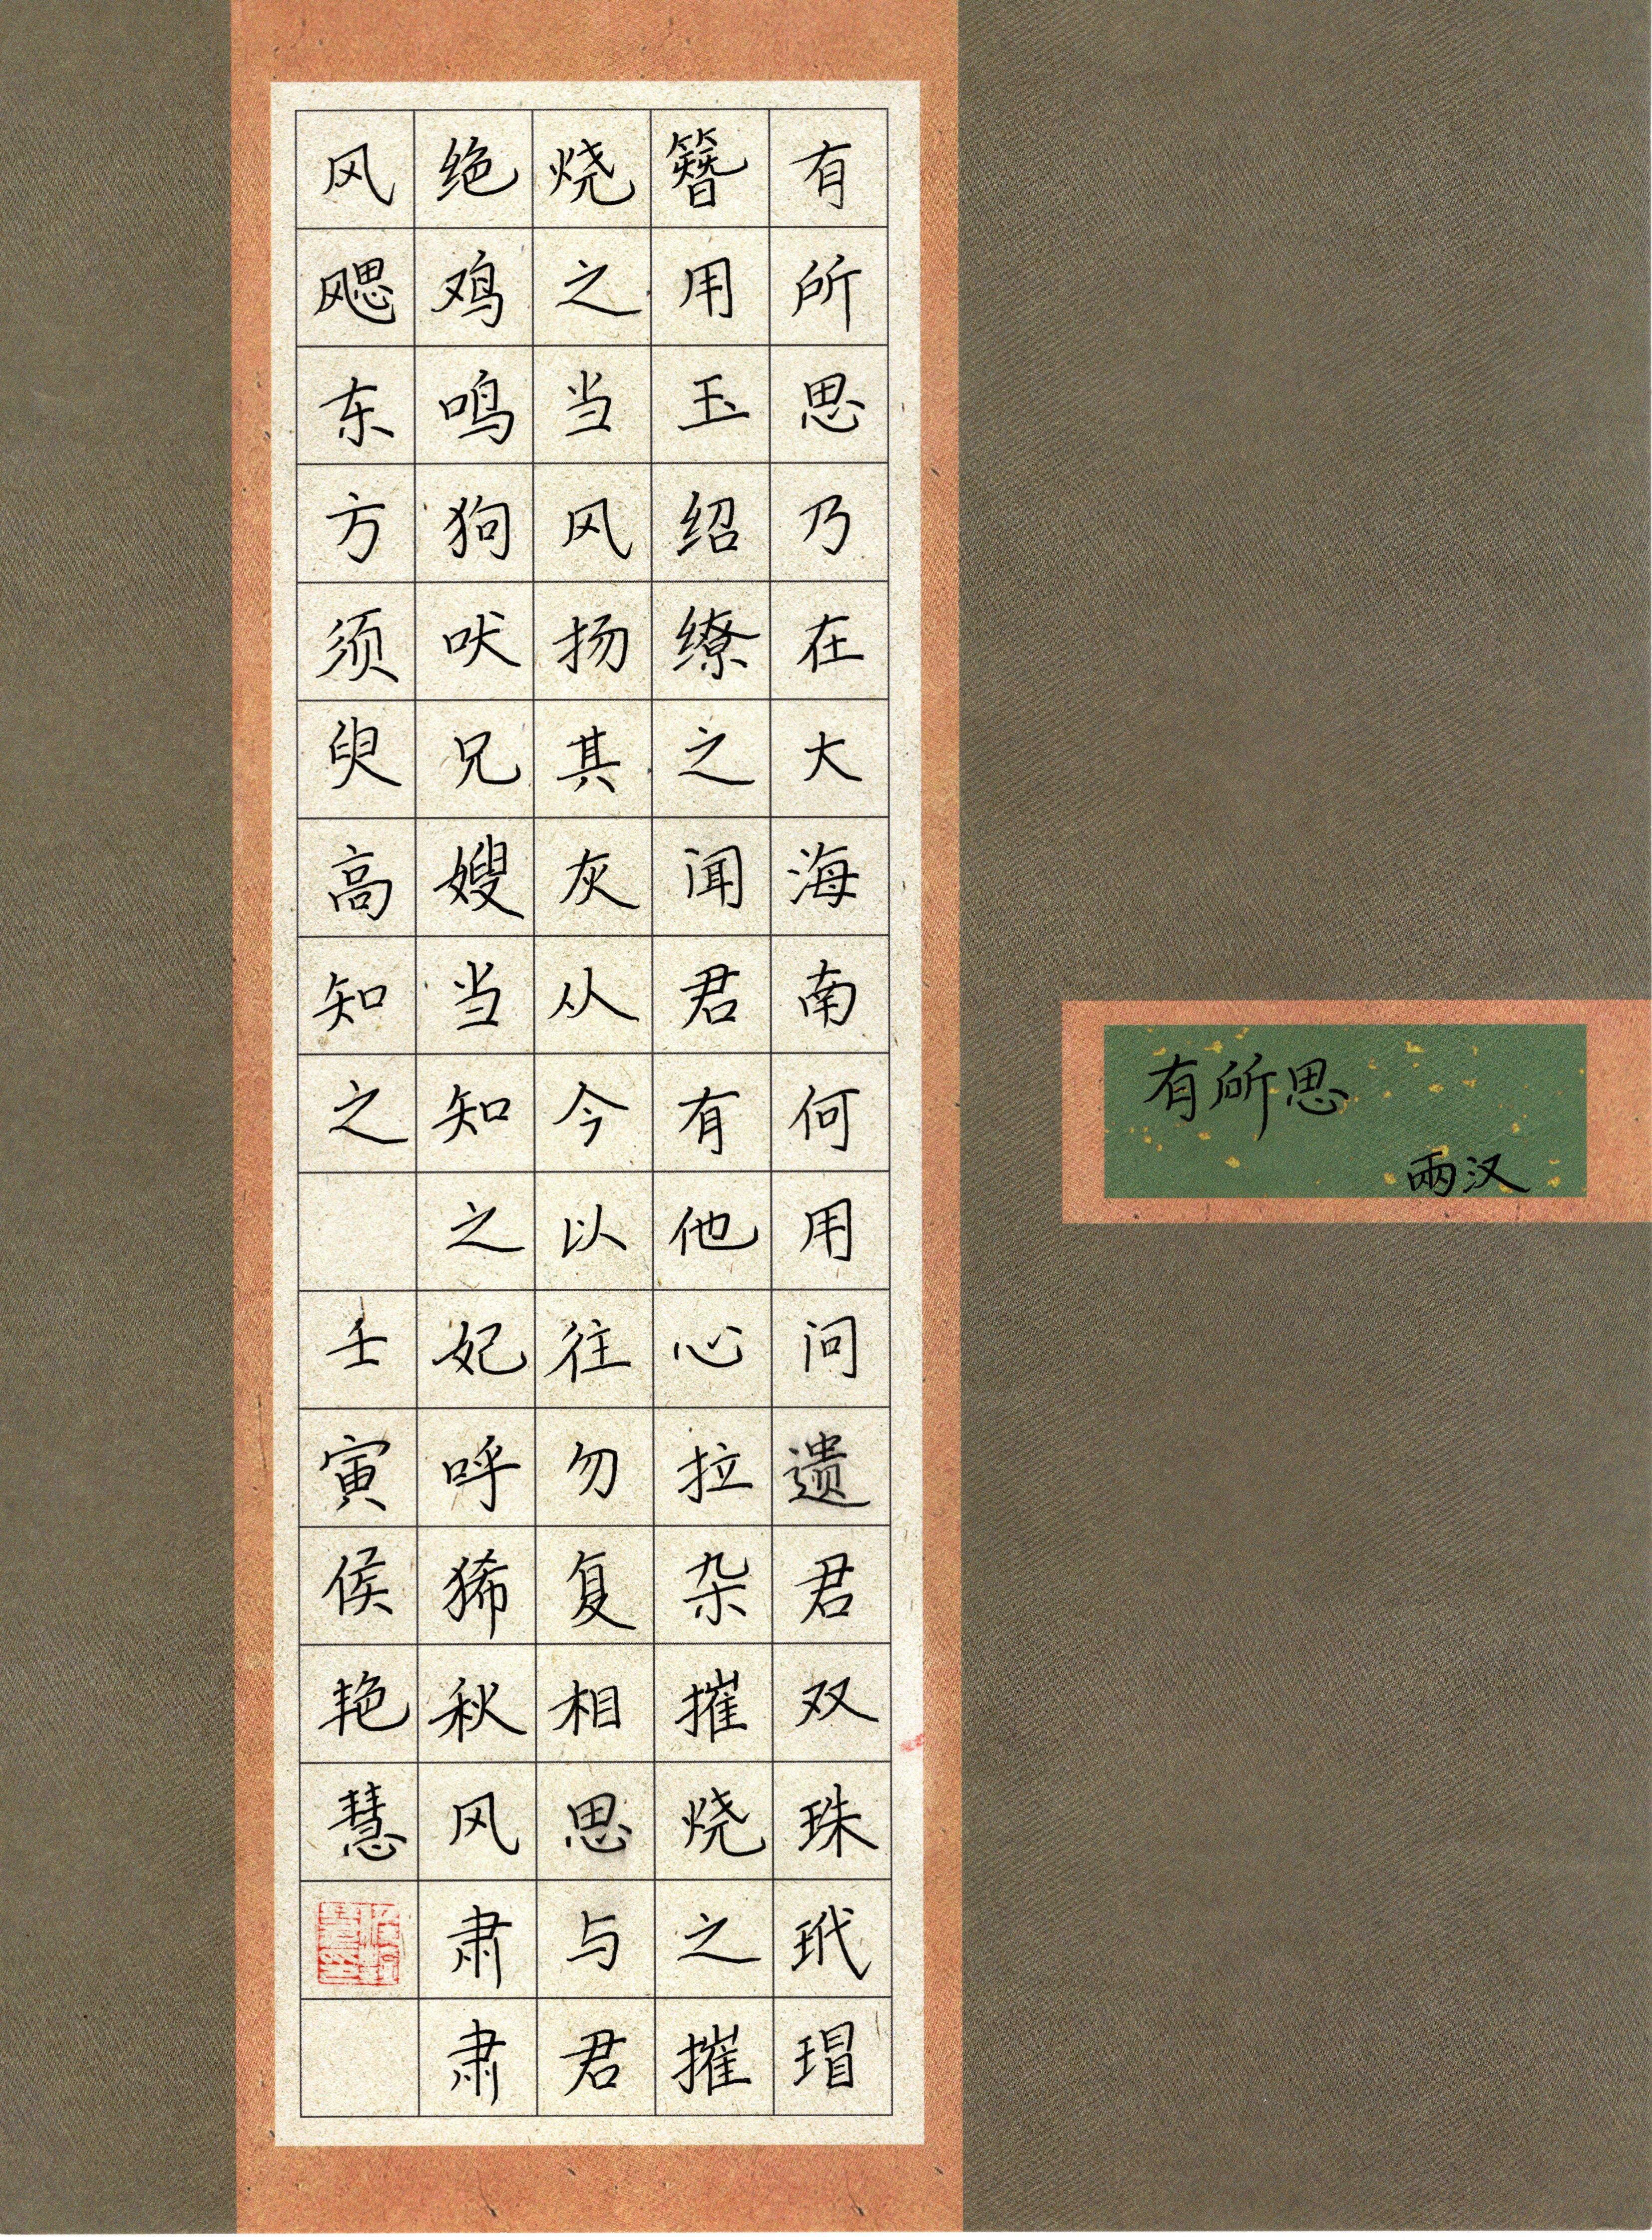 有所思乃在大海南何用问遗君双珠玳瑁
簪用玉绍缭之闻君有他心拉杂摧烧之摧
烧之当风扬其灰从今以往勿复相思与君
绝鸡鸣狗吠兄嫂当知之妃呼狶秋风肃肃
风飔东方须臾高知之 壬寅侯艳慧
有所思
两汉